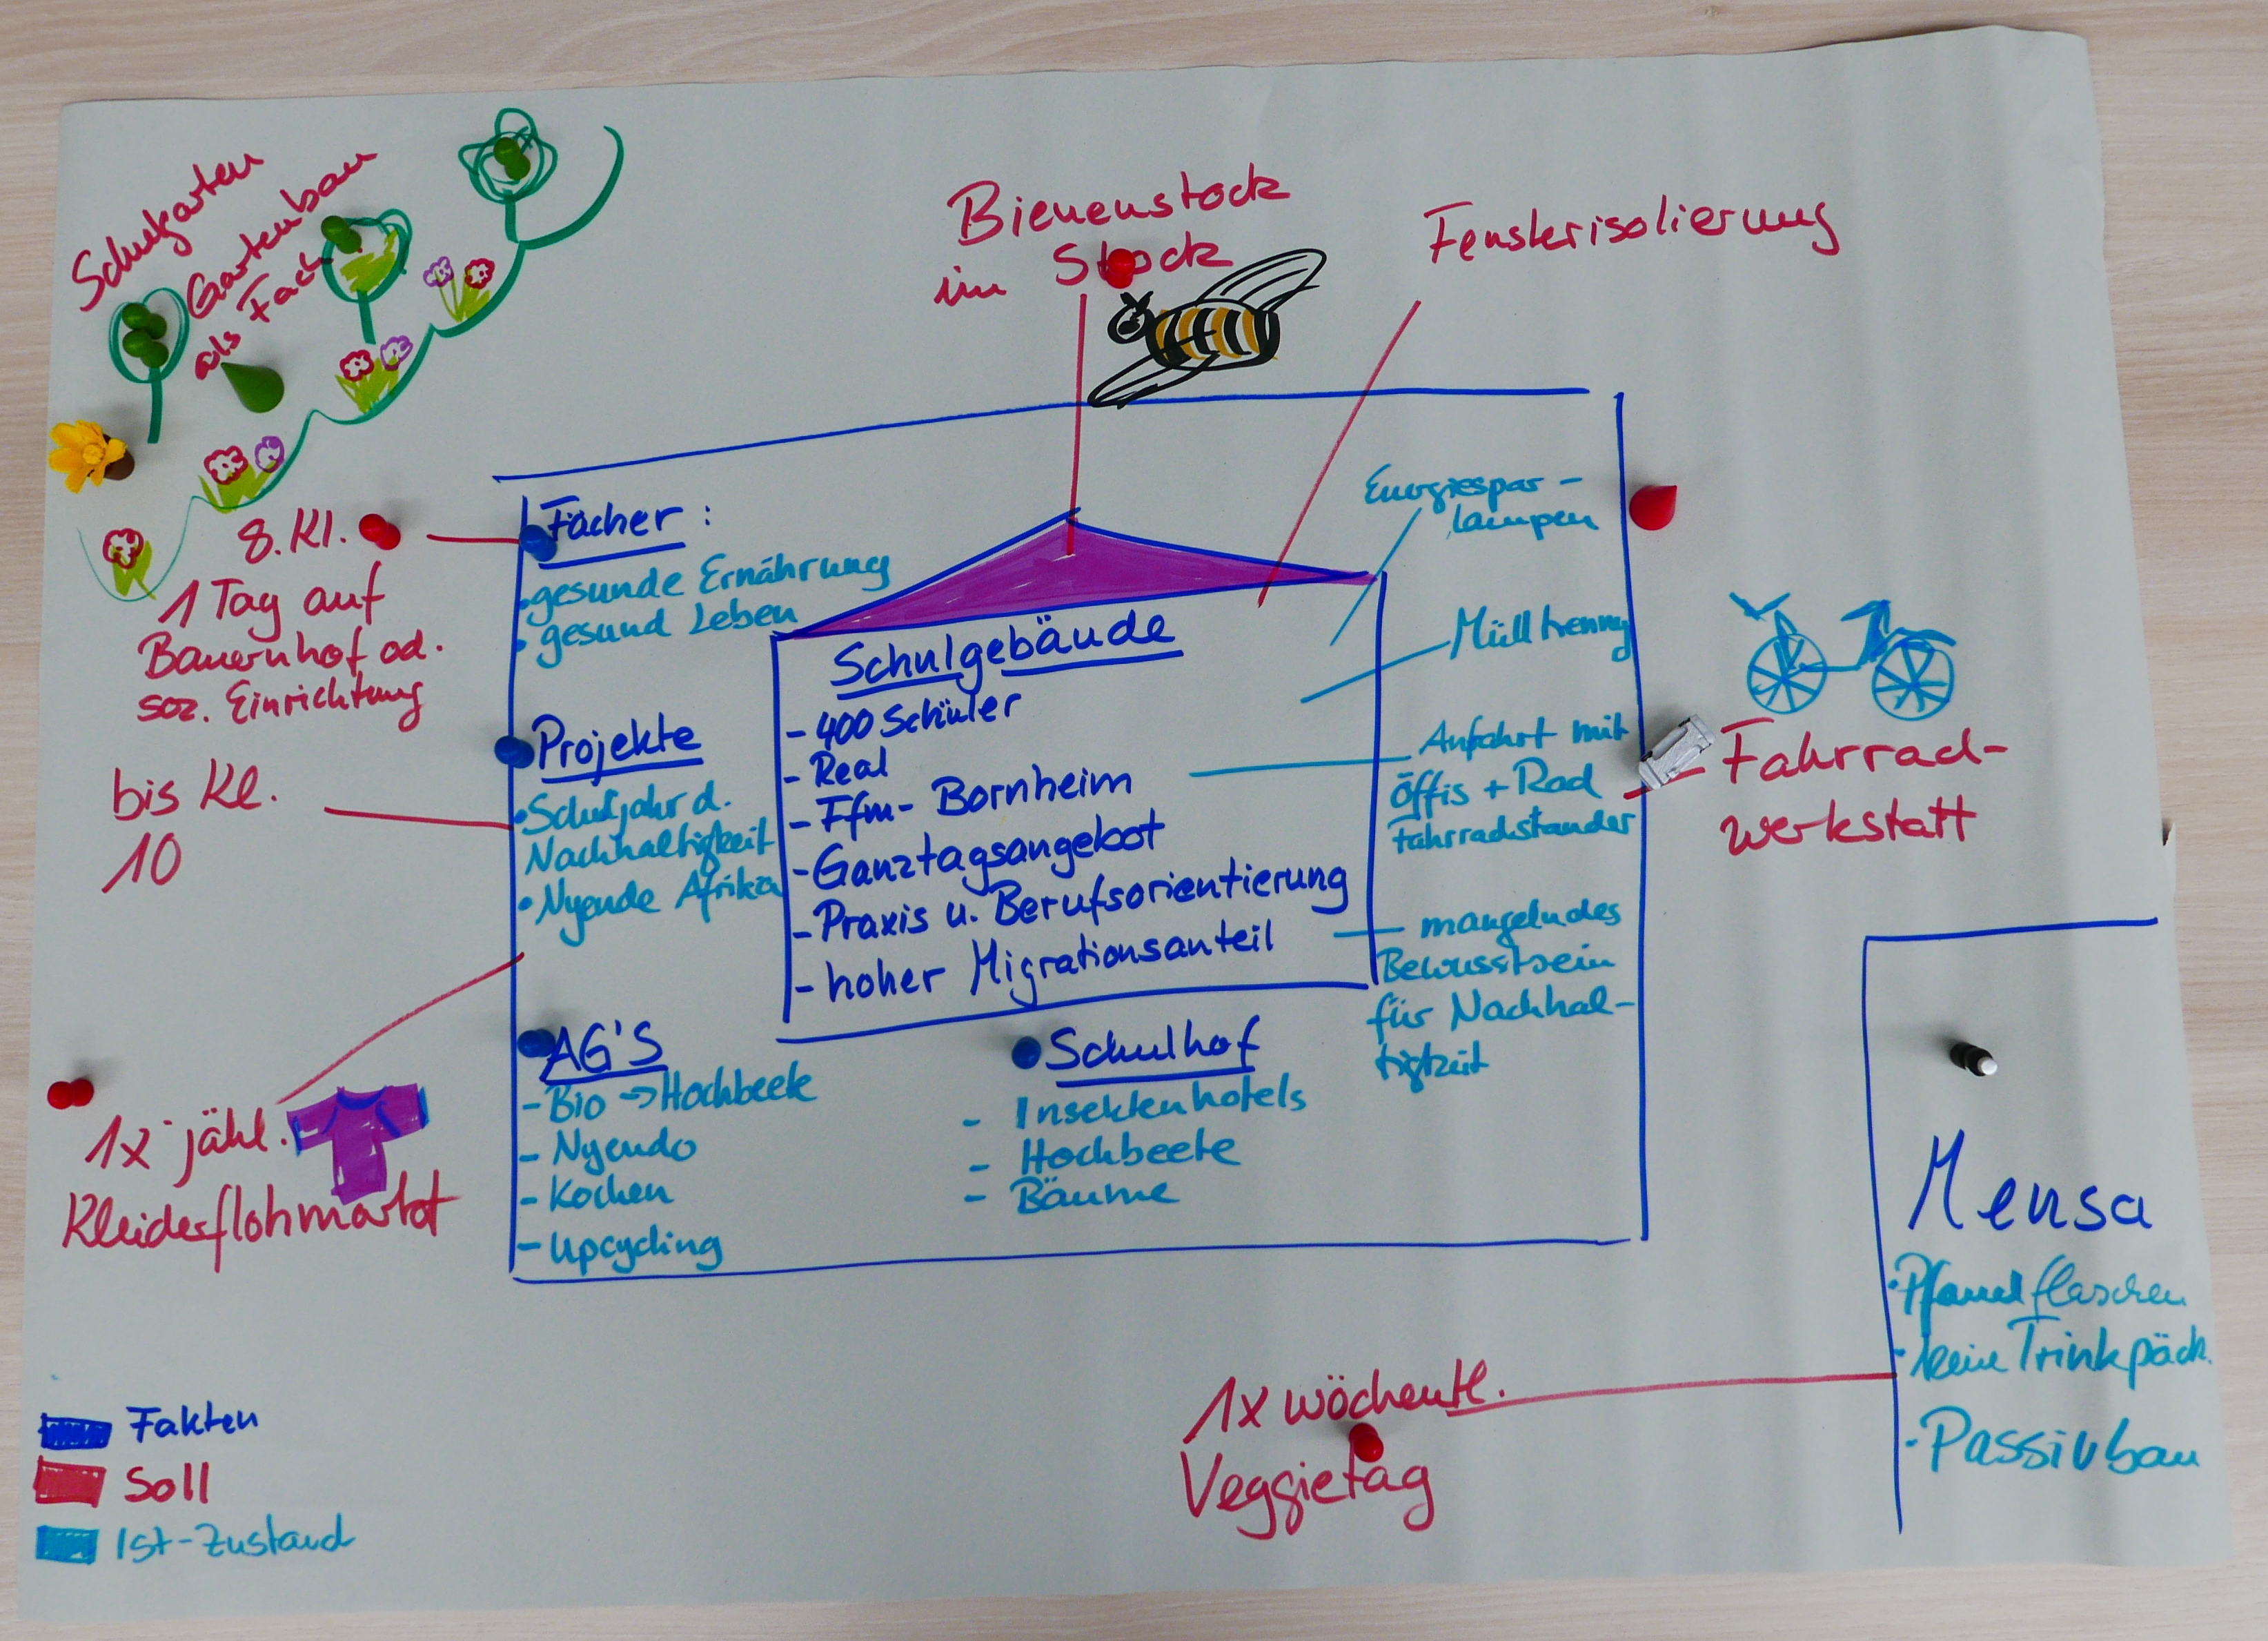 Schulgarten
Gartenbau
als Fach
Bienenstock
im Stock
Fensterisolierung
8. Kl.
1 Tag auf
Bauernhof od.
soz. Einrichtung
bis Kl.
10
1x jährl.
Kleiderflohmarkt
Fächer:
• gesunde Ernährung
• gesund Leben
Projekte
• Schuljahr d.
Nachhaltigkeit
• Nyendo Afrika
AG'S
- Bio → Hochbeete
- Nyendo
- Kochen
- Upcycling
Schulgebäude
- 400 Schüler
- Real
- Ffm- Bornheim
- Ganztagsangebot
- Praxis u. Berufsorientierung
- hoher Migrationsanteil
Schulhof
- Insektenhotels
- Hochbeete
- Bäume
Energiespar-
lampen
Mülltrenng
Anfahrt mit
Öffis + Rad
Fahrradständer
mangelndes
Bewusstsein
für Nachhal-
tigkeit
Fahrrad-
werkstatt
Mensa
• Pfandflaschen
• keine Trinkpäck.
• Passivbau
1x wöchentl.
Veggietag
Fakten
Soll
Ist-Zustand